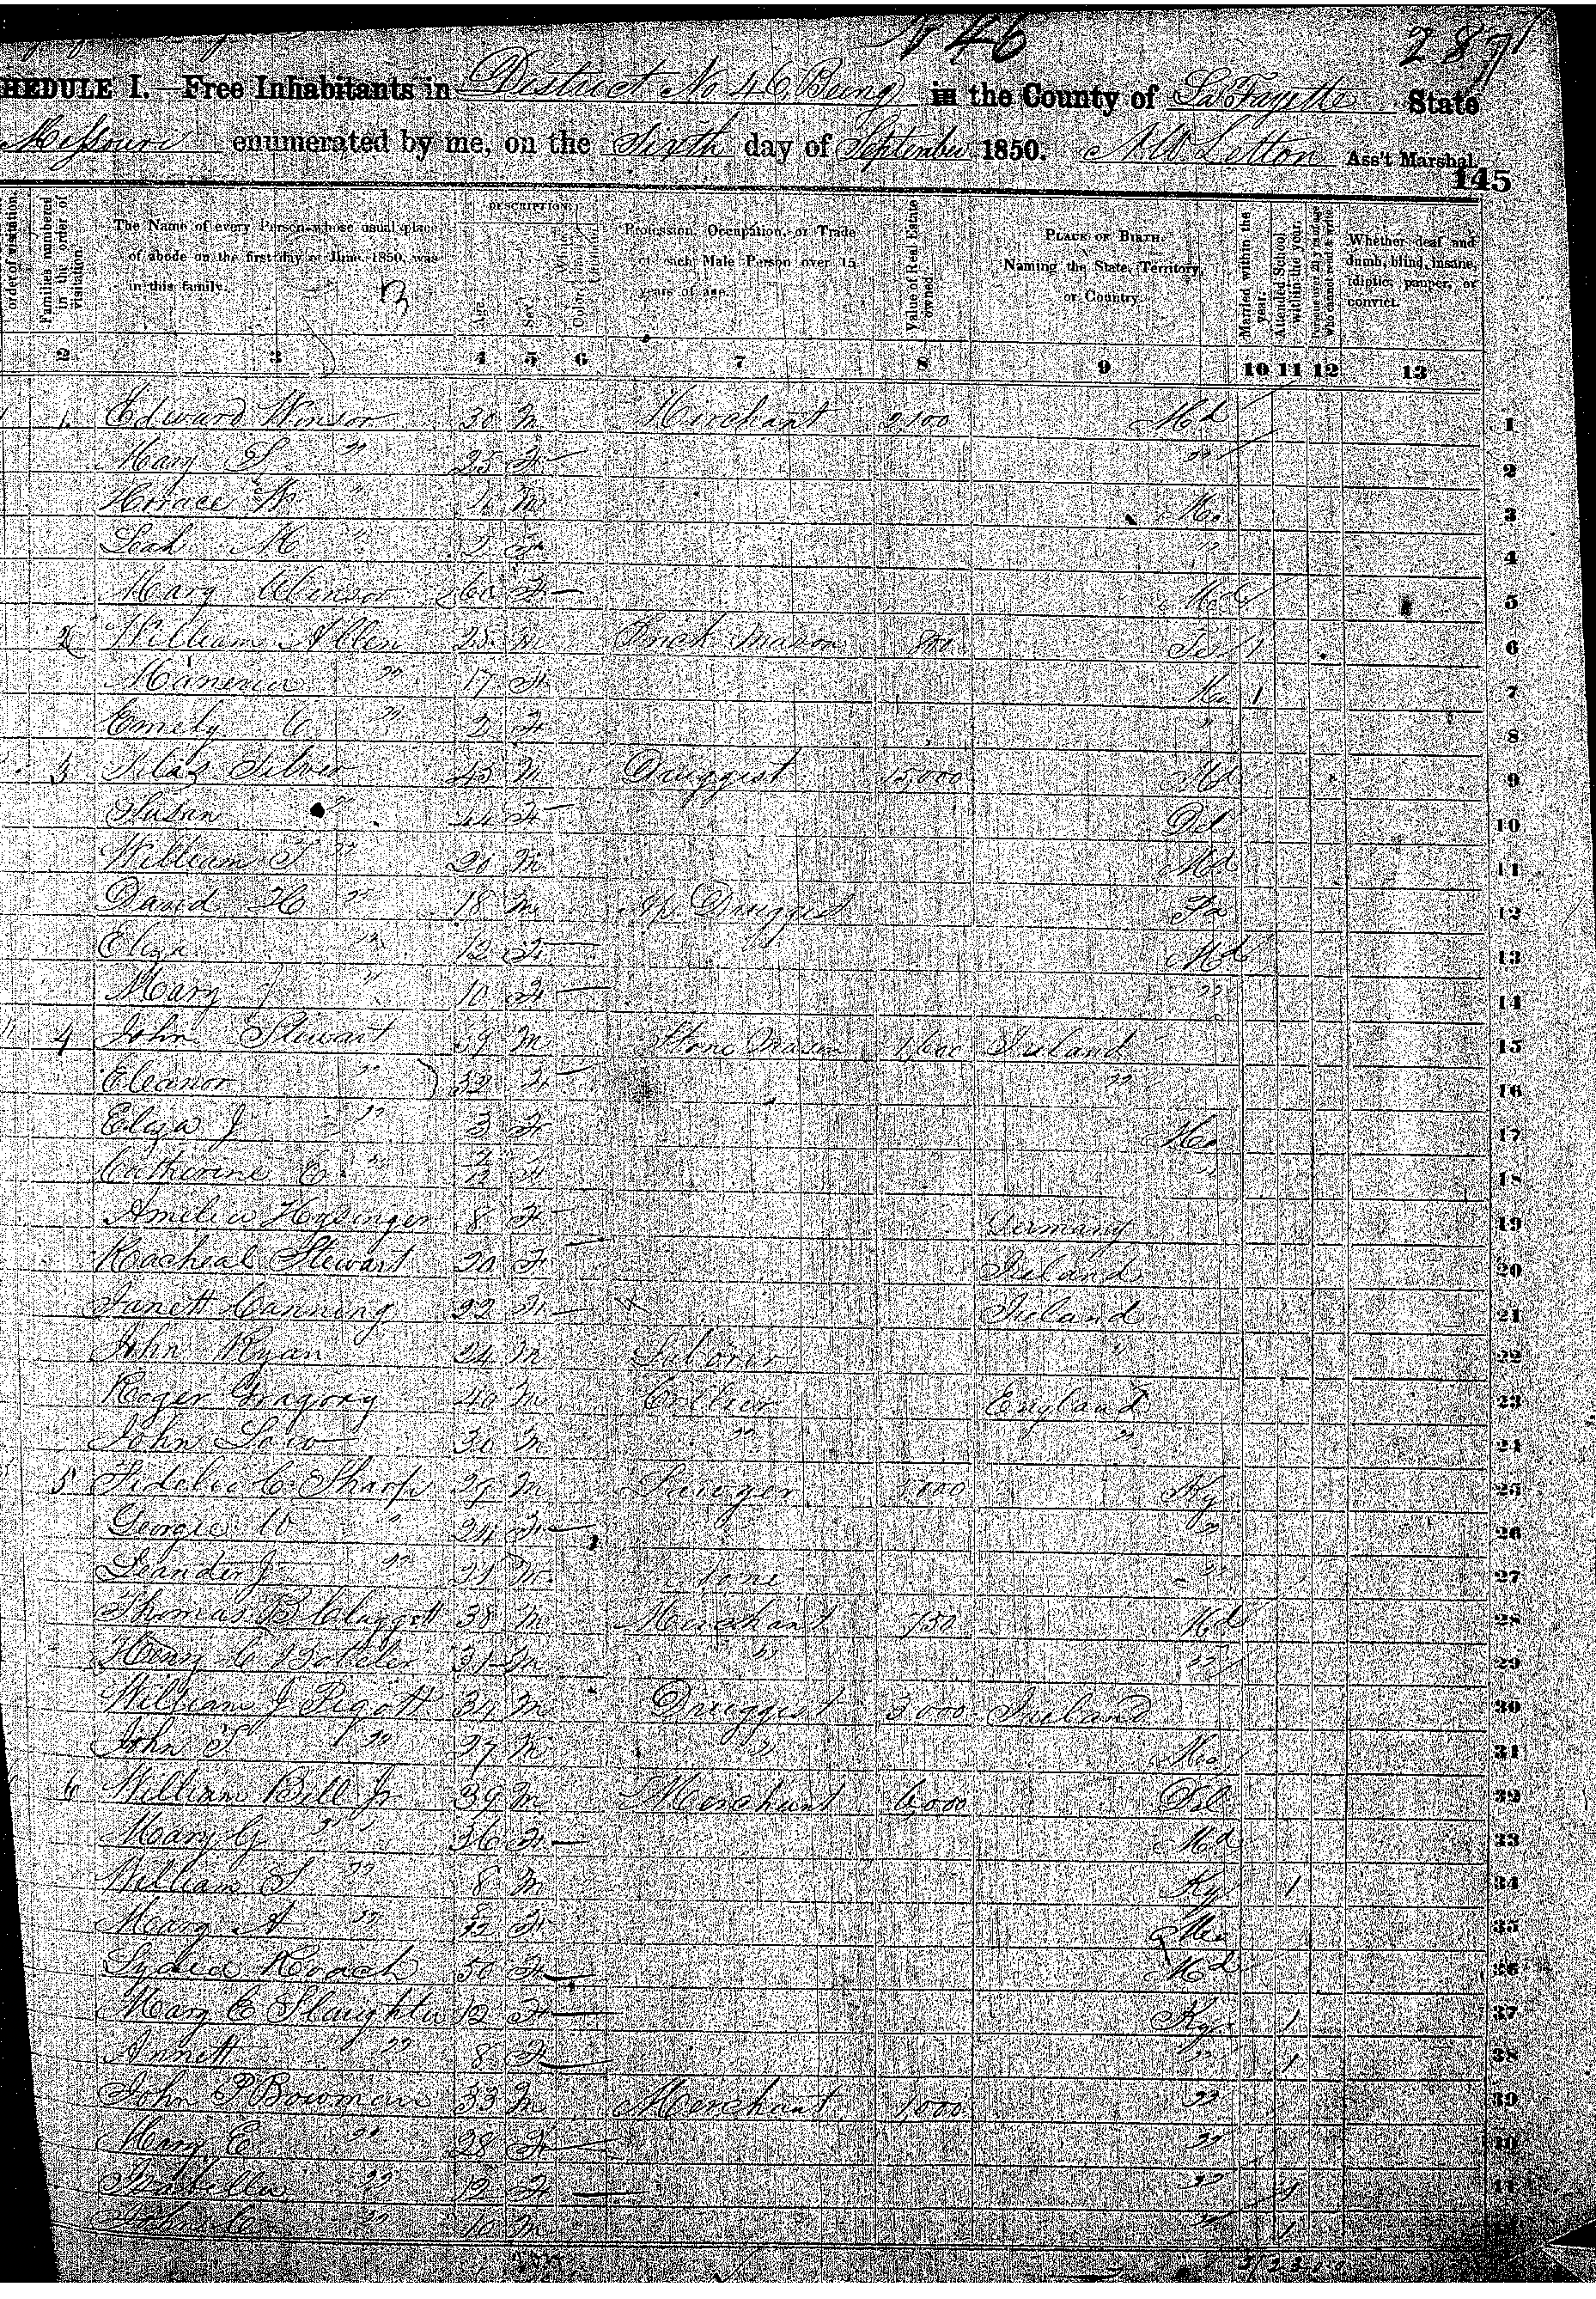 No 46 287
HEDULE I.—Free Inhabitants in District No 46 Being in the County of LaFayette State
Missouri enumerated by me, on the Sixth day of September 1850. Ass't Marshal.
145
order of visitation.
Families numbered in the order of visitation.
The Name of every Person whose usual place of abode on the first day of June, 1850, was in this family.
DESCRIPTION.
Age.
Sex.
Profession, Occupation, or Trade of each Male Person over 15 years of age.
Value of Real Estate owned.
PLACE OF BIRTH. Naming the State, Territory, or Country.
Married within the year.
Attended School within the year.
Persons over 20 y'rs of age who cannot read & write.
Whether deaf and dumb, blind, insane, idiotic, pauper, or convict.
2 3 4 5 6 7 8 9 10 11 12 13
1 Edward Winsor 30 M Merchant 2,100 Md 1
Mary S " 25 F " 2
Horace M Mo 3
Leah M " F " 4
Mary Winsor 60 F Md 5
2 William Allen 25 M Brick Mason 800 1 6
" 17 F Mo 1 7
Emely C " 2 F " 8
3 Silas Silver 45 M Druggist 15,000 Md 9
Susan " 44 F Del 10
William T " M Md 11
David H " 18 M Druggist 12
Eliza " 12 F Md 13
Mary J " 10 F " 14
4 John Stewart 39 M Stone Mason 1,600 Ireland 15
Eleanor " 32 F " 16
Eliza J " 3 F Mo 17
Catherine E " F " 18
Amelia Hysinger 8 F Germany 19
Racheal Stewart 20 F Ireland 20
Janett Canning 22 Ireland 21
John Ryan 24 M Laborer " 22
Roger Gregory 40 M Collier England 23
John Law 30 M " " 24
5 Fidelio C Sharp 29 M Lawyer Ky 25
George W " 24 F " 26
Leander J " 21 M None " 27
Thomas B Claggett 38 M Merchant 750 Md 28
Henry C Boteler M " " 29
William J Pigott 34 M Druggist 3000 Ireland 30
John S " 27 M " 31
6 William Bell Jr 39 M Merchant 6,000 Del 32
Mary G " 36 F Md 33
William S " 8 M Ky 1 34
Mary A " F Mo 35
Lydia Roach 50 F Md 36
Mary E Slaughter 12 F Ky 1 37
Annett " 8 F " 1 38
John P Bowman 33 M Merchant 1,000 " 39
Mary E " 28 F " 40
Isabella " 12 F " 1 41
John C " 10 M " 1